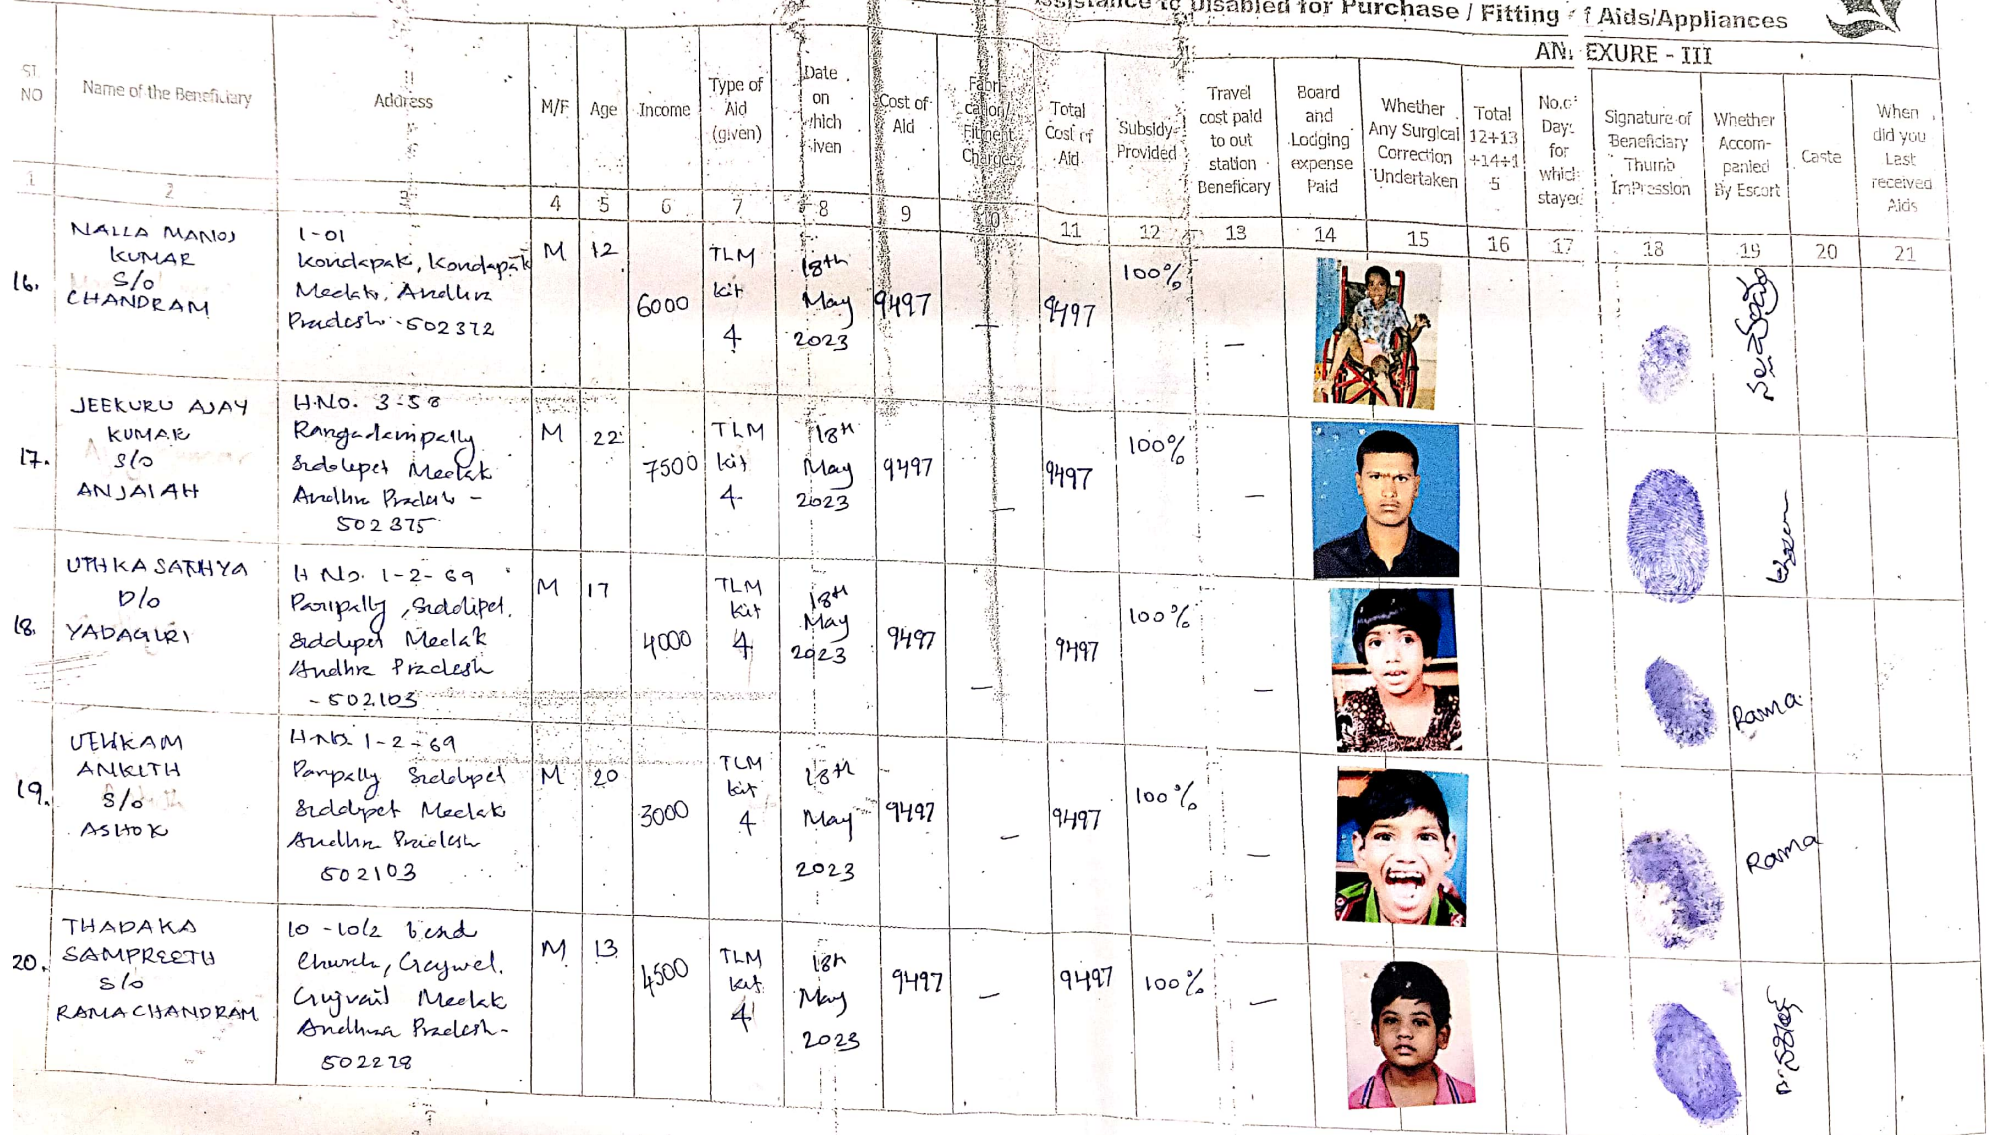 ssistance to Disabled for Purchase / Fitting of Aids/Appliances
ANNEXURE - III
Sl. NO
Name of the Beneficiary
Address
M/F
Age
Income
Type of
Aid
(given)
Date
on
which
given
Cost of
Aid
Fabri-
cation/
Fitment
Charges
Total
Cost of
Aid
Subsidy
Provided
Travel
cost paid
to out
station
Beneficary
Board
and
Lodging
expense
Paid
Whether
Any Surgical
Correction
Undertaken
Total
12+13
+14+1
5
No.of
Days
for
which
stayed
Signature of
Beneficiary
Thumb
ImPression
Whether
Accom-
panied
By Escort
Caste
When
did you
Last
received
Aids
1 2 3 4 5 6 7 8 9 10 11 12 13 14 15 16 17 18 19 20 21
16.
NALLA MANOJ
KUMAR
S/o
CHANDRAM
1-01
Kondapak, Kondapak
Medak, Andhra
Pradesh - 502372
M 12 6000
TLM
kit
4
18th
May
2023
9497 — 9497 100% —
17.
JEEKURU AJAY
KUMAR
S/o
ANJAIAH
H.No. 3-58
Rangadampally
Siddipet Medak
Andhra Pradesh -
502375
M 22 7500
TLM
kit
4
18th
May
2023
9497 — 9497 100% —
18.
UTHKA SATHYA
D/o
YADAGIRI
H No. 1-2-69
Paripally, Siddipet.
Siddipet Medak
Andhra Pradesh
- 502103
M 17 4000
TLM
kit
4
18th
May
2023
9497 — 9497 100% —
Rama
19.
UTHKAM
ANKITH
S/o
ASHOK
H.No. 1-2-69
Paripally Siddipet
Siddipet Medak
Andhra Pradesh
502103
M 20 3000
TLM
kit
4
18th
May
2023
9497 — 9497 100% —
Rama
20.
THADAKA
SAMPREETH
S/o
RAMA CHANDRAM
10-10/2 bend
Church, Gajwel.
Gujvail Medak
Andhra Pradesh-
502278
M 13 4500
TLM
kit
4
18th
May
2023
9497 — 9497 100% —